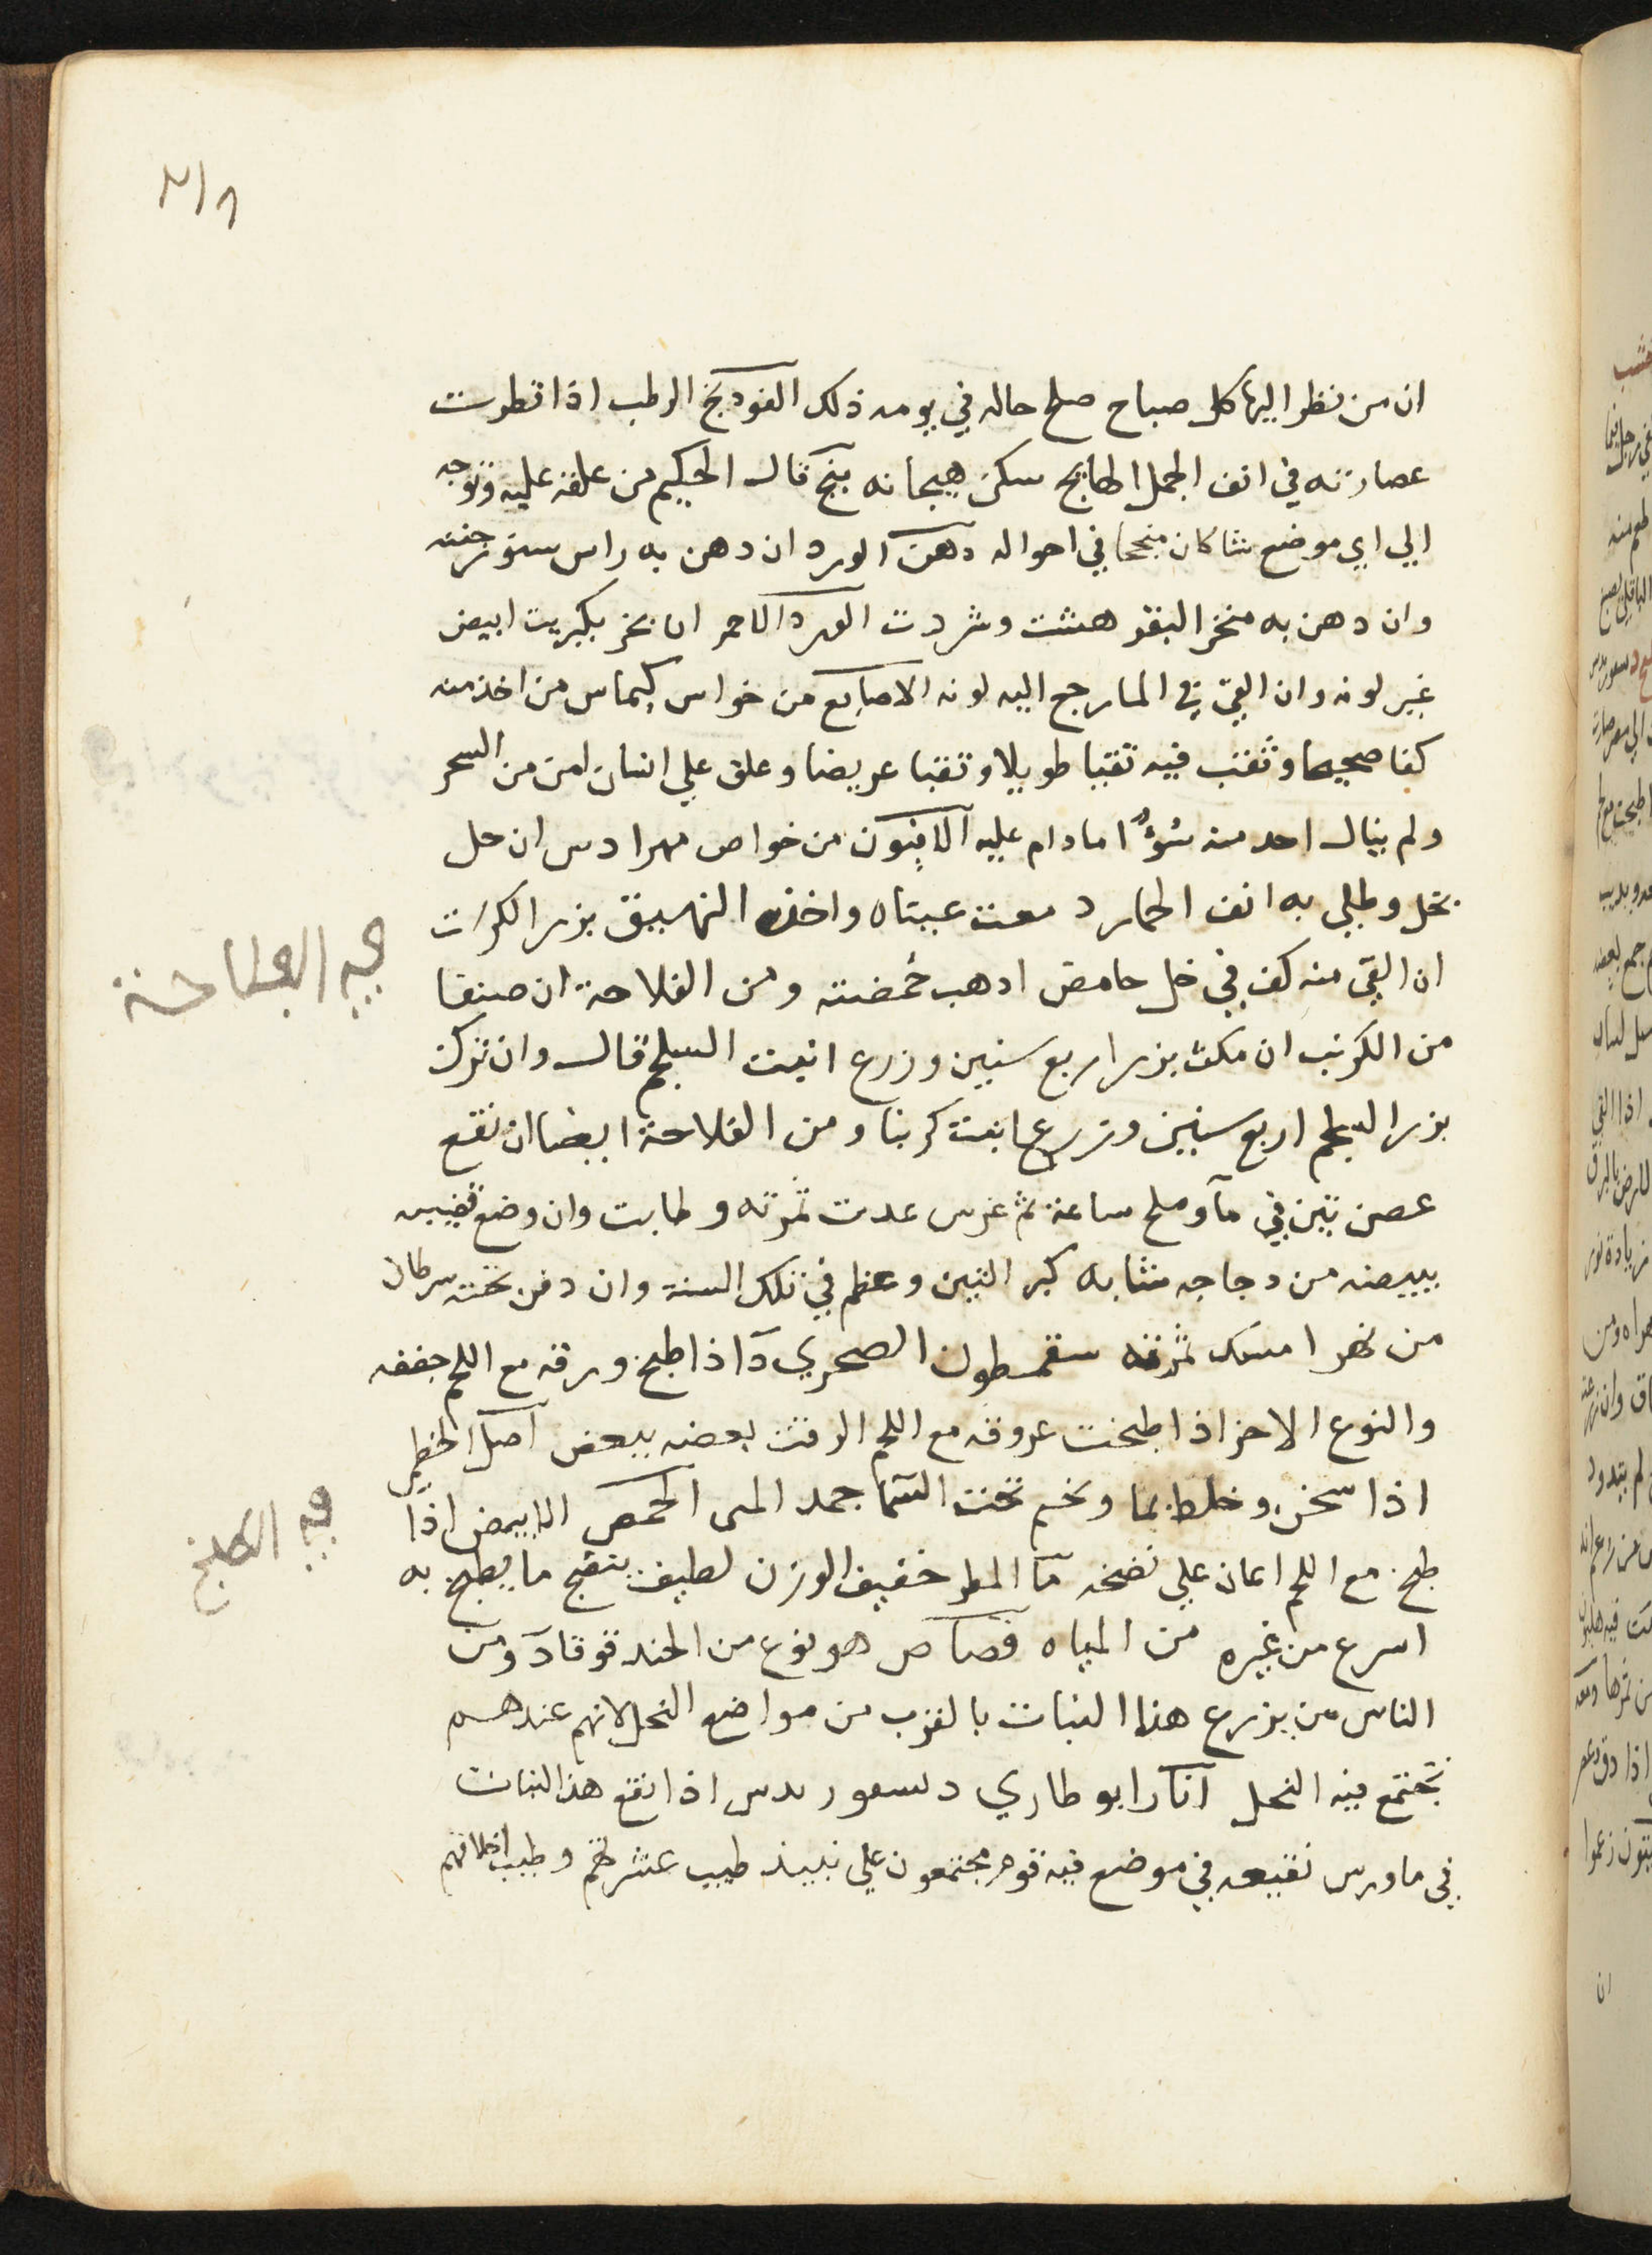 ان من نظر اليها كل صباح صلح حاله في يومه ذلك الفودنج الرطب اذا قطرت
عصارته في انف الجمل الهايج سكن هيجانه بنج قال الحكيم من علقه عليه وتوجه
الي اي موضع شا كان منجحا في احواله دهن الورد ان دهن به راس سنور جننه
وان دهن به منخر البقر هشت وشردت الورد الاحمر ان بخر بكبريت ابيض
غير لونه وان القي في الما رجع اليه لونه الاصابع من خواس كيماس من اخذ منه
كفا صحيحا وثقب فيه ثقبا طويلا وثقبا عريضا وعلق علي انسان امن من السحر
ولم ينال احد منه سوءا مادام عليه الافيون من خواص مهرادس ان حل
بخل وطلي به انف الحمار دمعت عيناه واخذه النهيق بزر الكراث
ان القي منه كف في خل حامض اذهب حمضته ومن الفلاحة ان صنفا
من الكرنب ان مكث بزره اربع سنين وزرع انبت السلجم قال وان ترك
بزر السلجم اربع سنين وزرع انبت كرنبا ومن الفلاحة ايضا ان نقع
غصن تين في مآ وملح ساعة ثم غرس عدت ثمرته وطابت وان وضع قضيبه
ببيضه من دجاجه شابه كبر التين وعظم في تلك السنة وان دفن تحته سرطان
من نهر امسك ثمرته سقمطون الصخري د اذا طبخ ورقه مع اللحم جففه
والنوع الاخر اذا طبخت عروقه مع اللحم الزقت بعضه ببعض اصل الخطمي
اذا سخن وخلط بما ونجم تحت السما جمد الما الحمص الابيض اذا
طبخ مع اللحم اعان علي نضجه ما المطر خفيف الوزن لطيف ينضج ما يطبخ به
اسرع من غيره من المياه قصاص هو نوع من الحندقوقا د ومن
الناس من يزرع هذا النبات بالقرب من مواضع النحل لانهم عندهم
تجتمع فيه النحل اناكرا بوطاري دسعوريدس اذا نقع هذا النبات
في ما ورس نقيعه في موضع فيه قوم مجتمعون علي نبيذ طيب عشرتهم وطيب اخلاقهم
في الفلاحة
في الطبخ